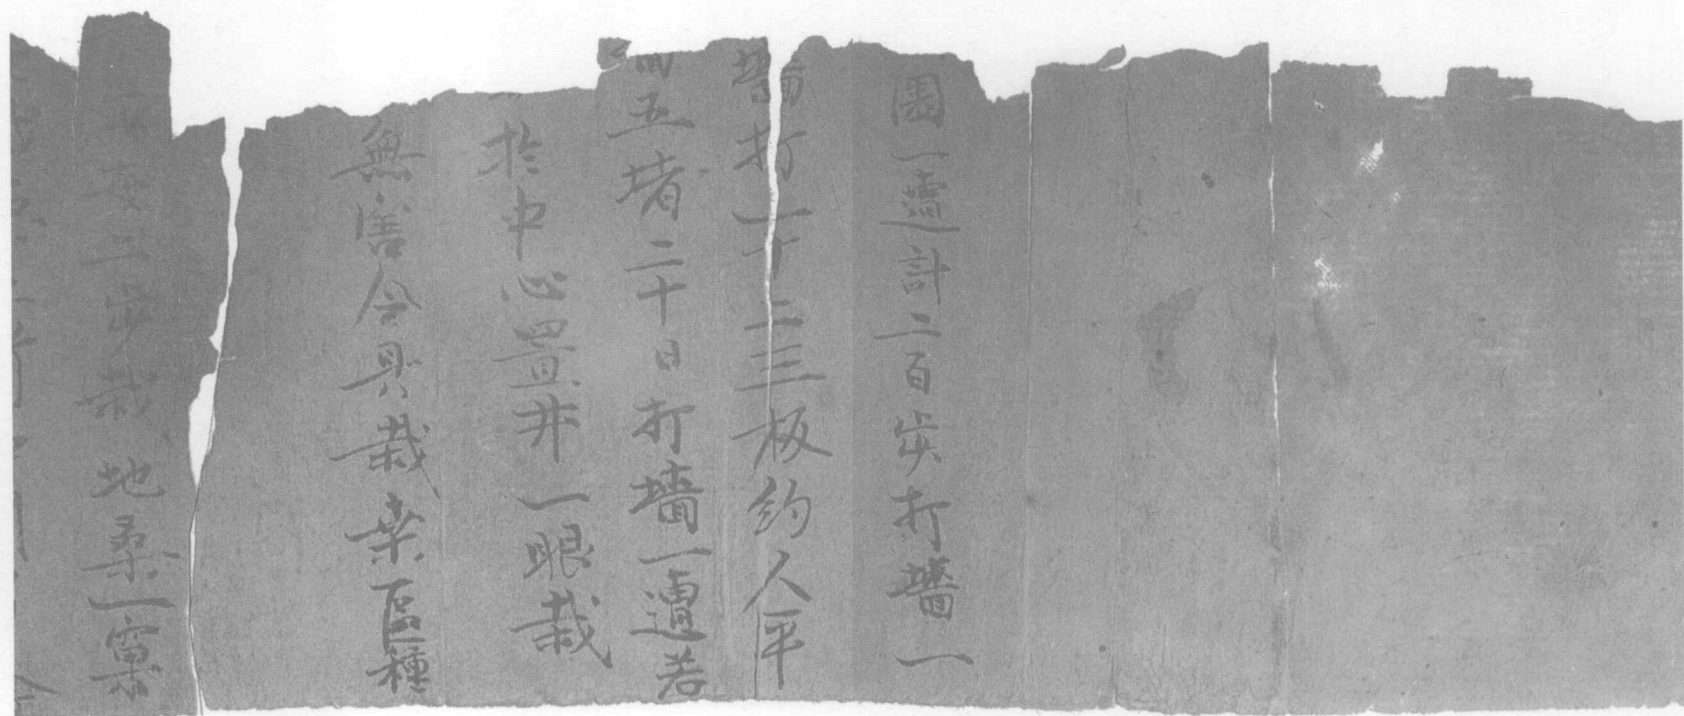 園一遭計二百步打墻一
墻打一十二三板約人平
五堵二十日打墻一遭若
於中心置井一眼栽
無害今具栽桑區種
二步栽 地桑一窠